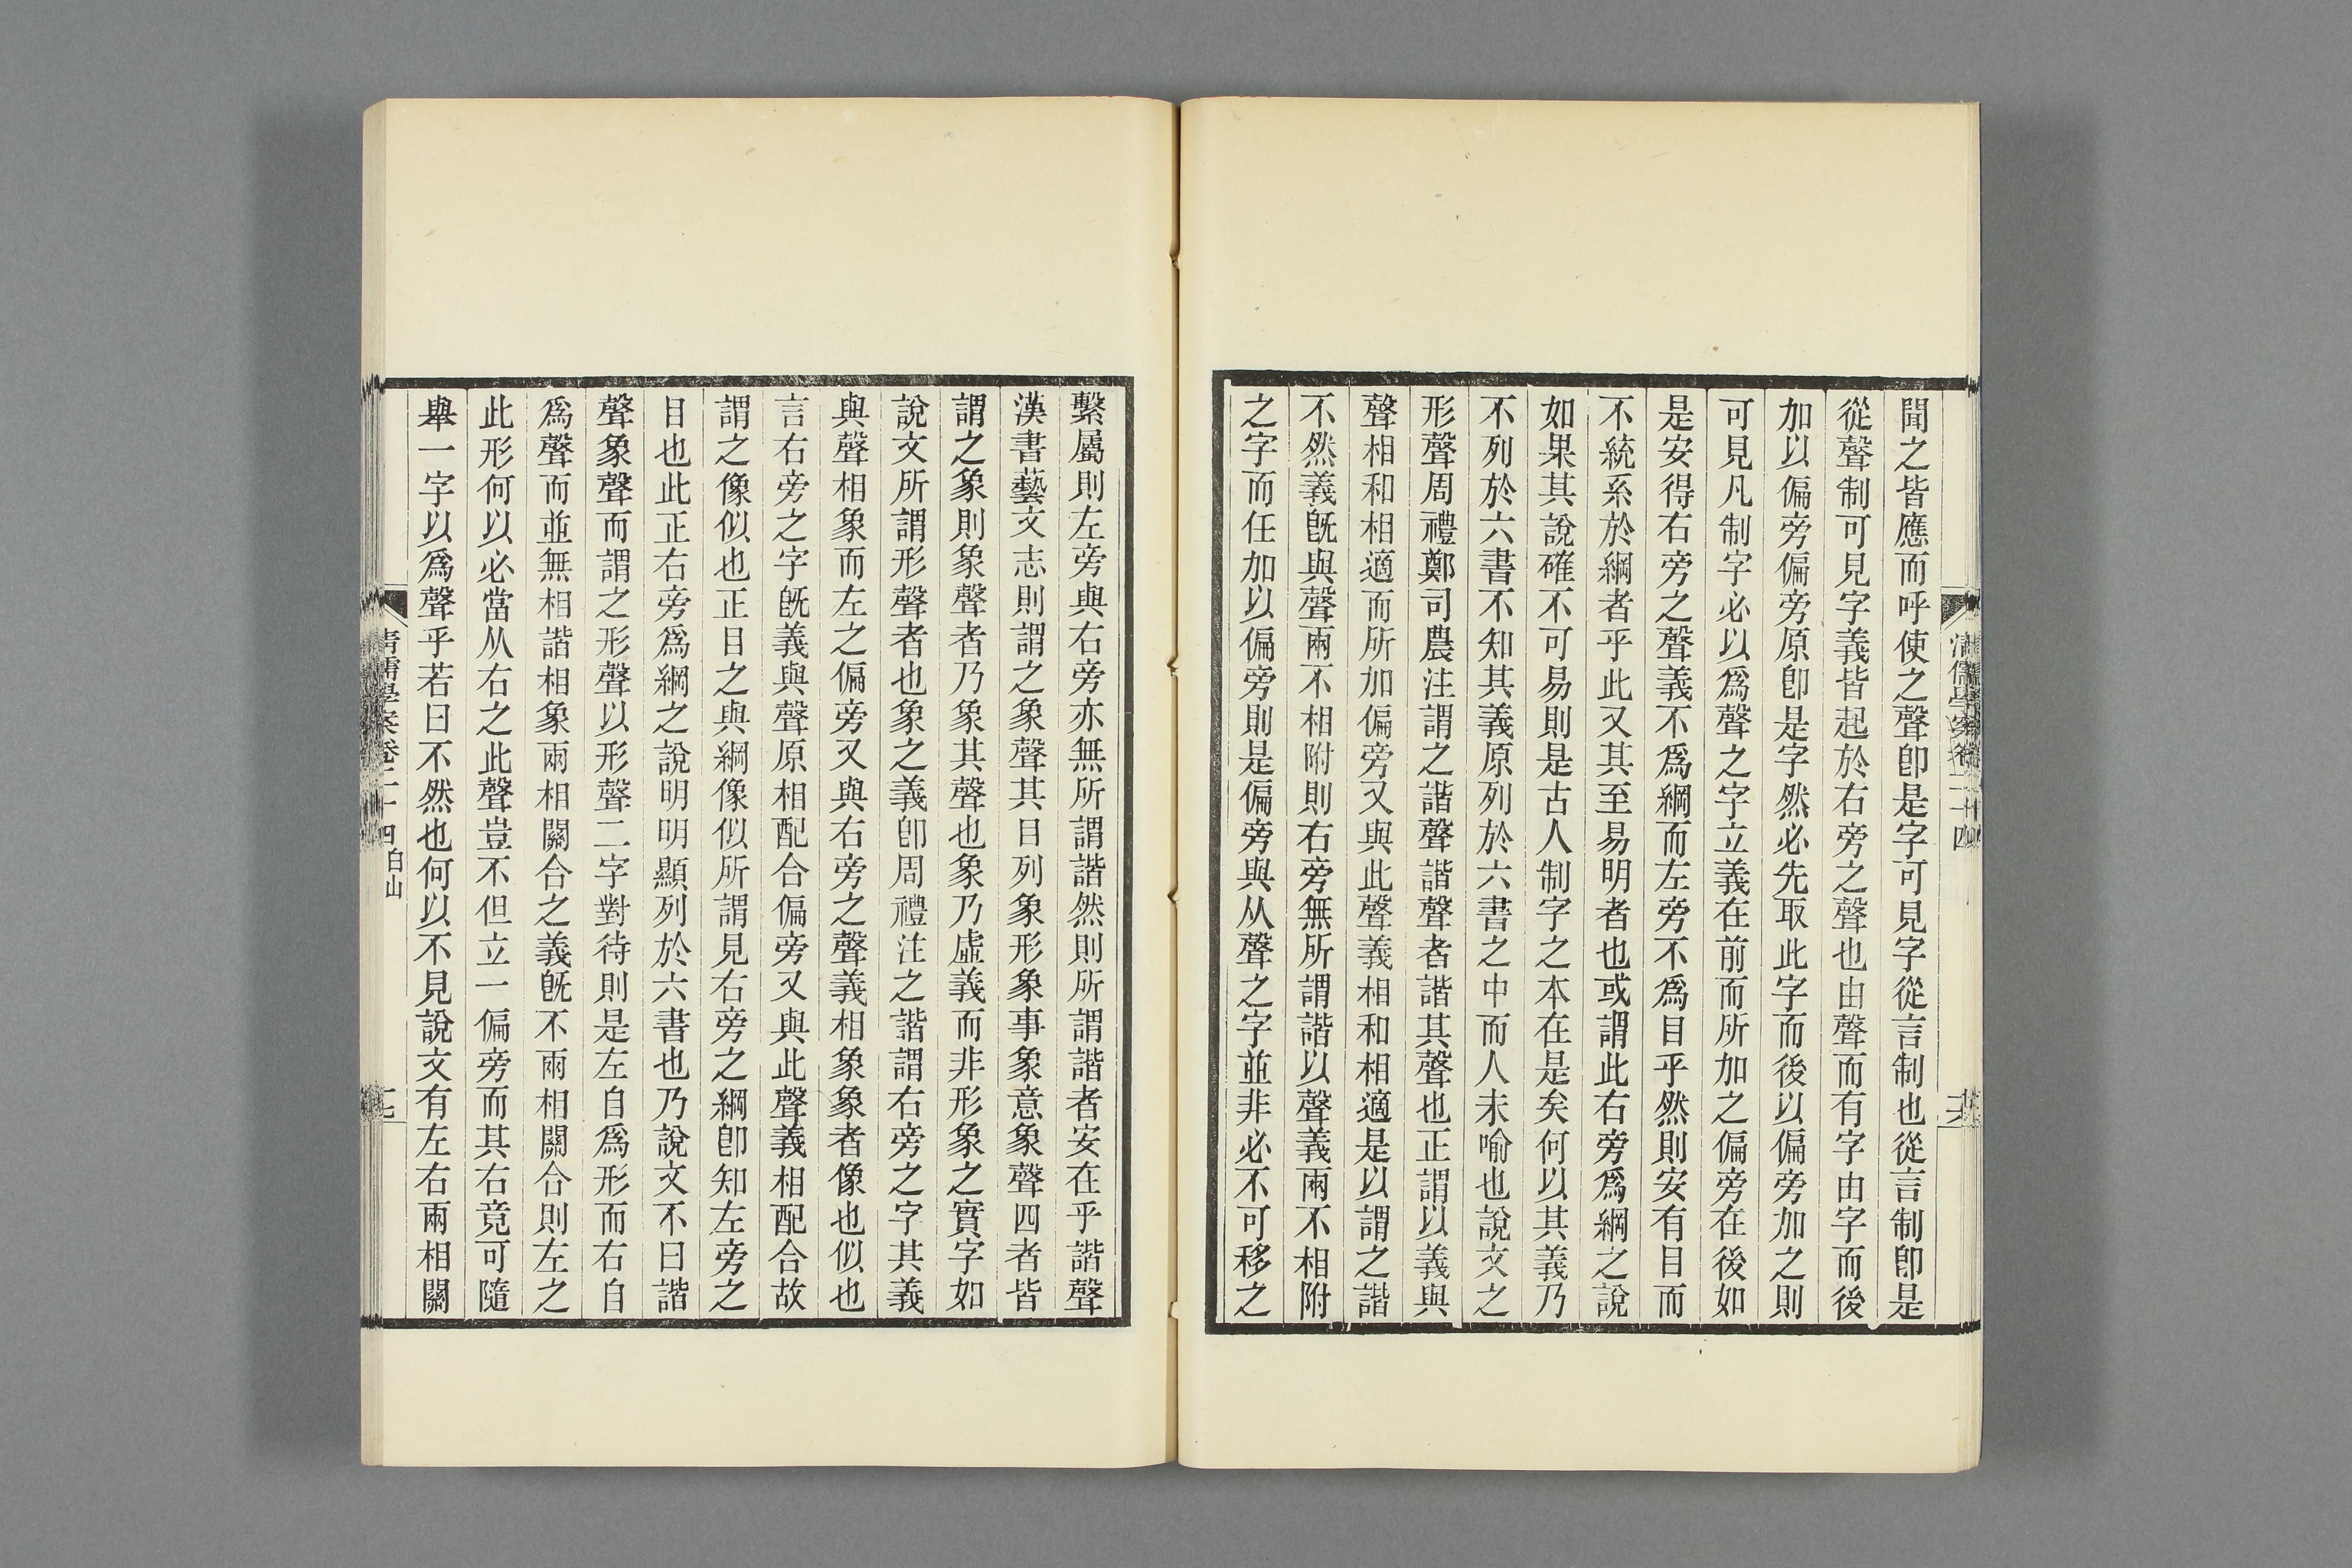 聞之皆應而呼使之聲卽是字可見字從言制也從言制卽是
從聲制可見字義皆起於右旁之聲也由聲而有字由字而後
加以偏旁偏旁原卽是字然必先取此字而後以偏旁加之則
可見凡制字必以爲聲之字立義在前而所加之偏旁在後如
是安得右旁之聲義不爲綱而左旁不爲目乎然則安有目而
不統系於綱者乎此又其至易明者也或謂此右旁爲綱之說
如果其說確不可易則是古人制字之本在是矣何以其義乃
不列於六書不知其義原列於六書之中而人未喻也說文之
形聲周禮鄭司農注謂之諧聲諧聲者諧其聲也正謂以義與
聲相和相適而所加偏旁又與此聲義相和相適是以謂之諧
不然義旣與聲兩不相附則右旁無所謂諧以聲義兩不相附
之字而任加以偏旁則是偏旁與从聲之字並非必不可移之
繫屬則左旁與右旁亦無所謂諧然則所謂諧者安在乎諧聲
漢書藝文志則謂之象聲其目列象形象事象意象聲四者皆
謂之象則象聲者乃象其聲也象乃虛義而非形象之實字如
說文所謂形聲者也象之義卽周禮注之諧謂右旁之字其義
與聲相象而左之偏旁又與右旁之聲義相象象者像也似也
言右旁之字旣義與聲原相配合偏旁又與此聲義相配合故
謂之像似也正目之與綱像似所謂見右旁之綱卽知左旁之
目也此正右旁爲綱之說明明顯列於六書也乃說文不曰諧
聲象聲而謂之形聲以形聲二字對待則是左自爲形而右自
爲聲而並無相諧相象兩相關合之義旣不兩相關合則左之
此形何以必當从右之此聲豈不但立一偏旁而其右竟可隨
舉一字以爲聲乎若曰不然也何以不見說文有左右兩相關
清儒學案卷二十四 白山
十七